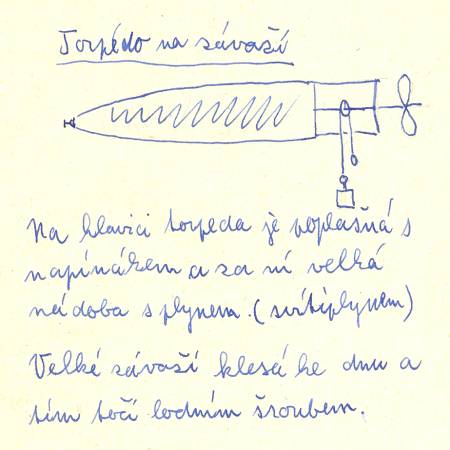 Torpédo na závaží
Na hlavici torpeda je poplašná s
napínákem a za ní velká
nádoba s plynem. (svítiplynem)
Velké závaží klesá ke dnu a
tím točí lodním šroubem.